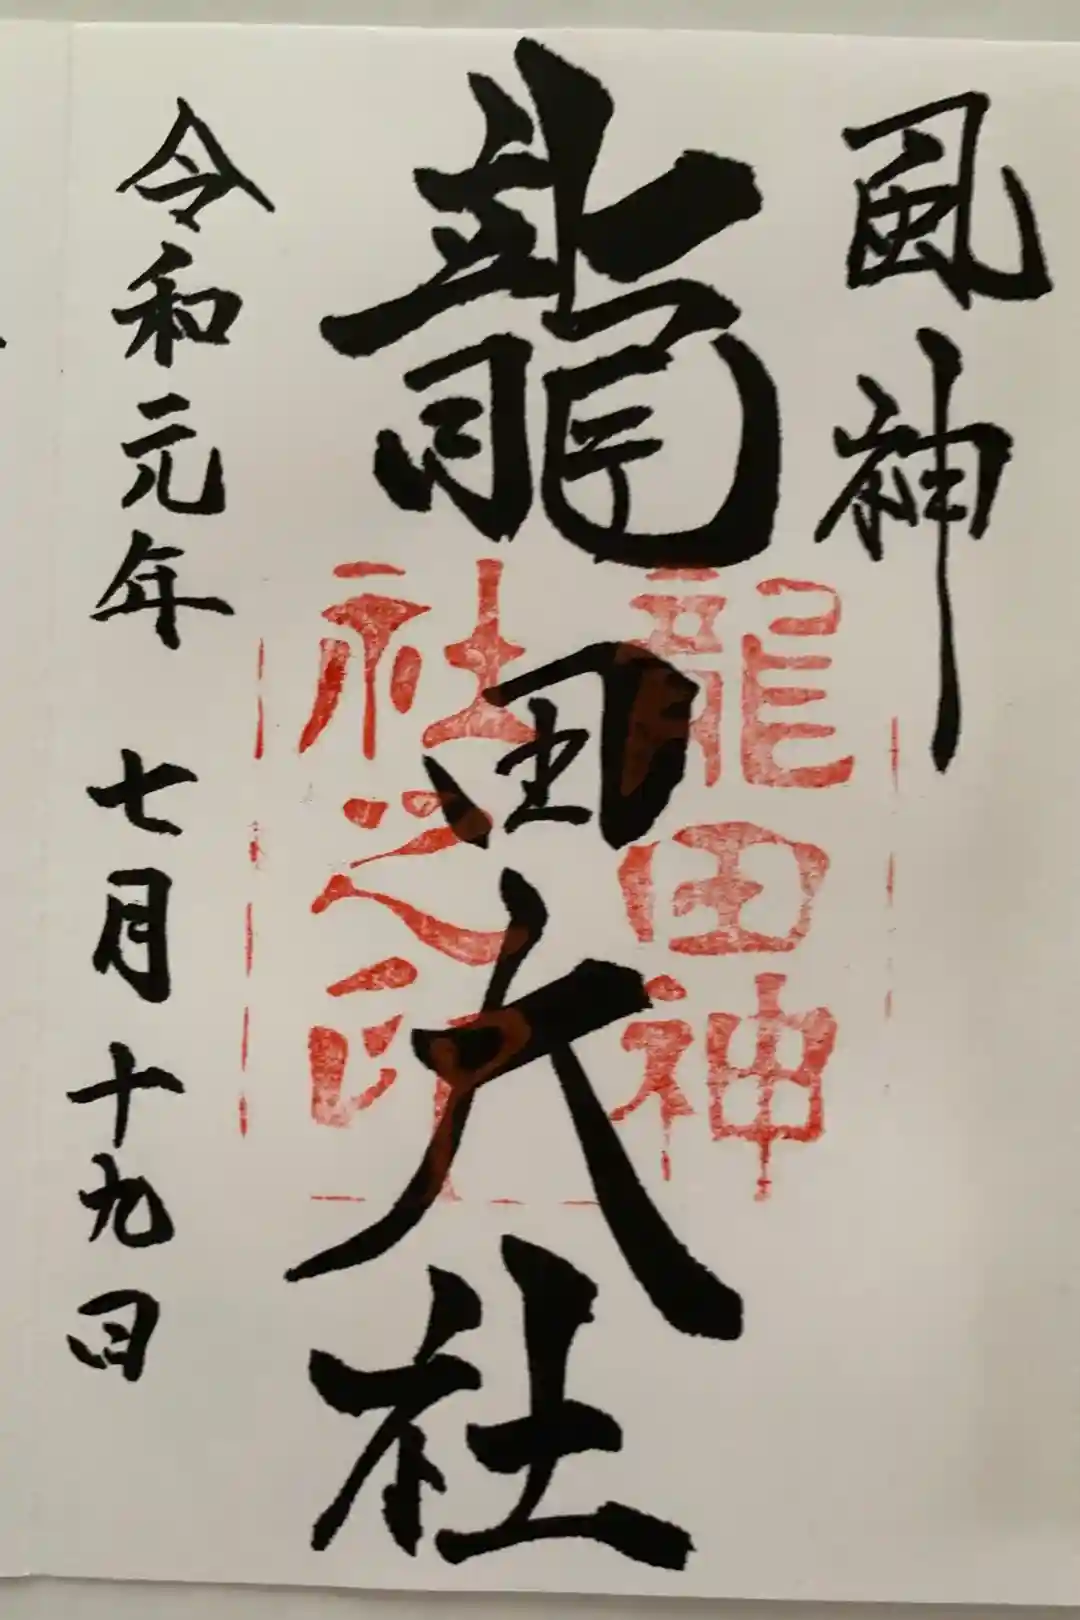 風神
龍田大社
龍田神
社之印
令和元年 七月十九日